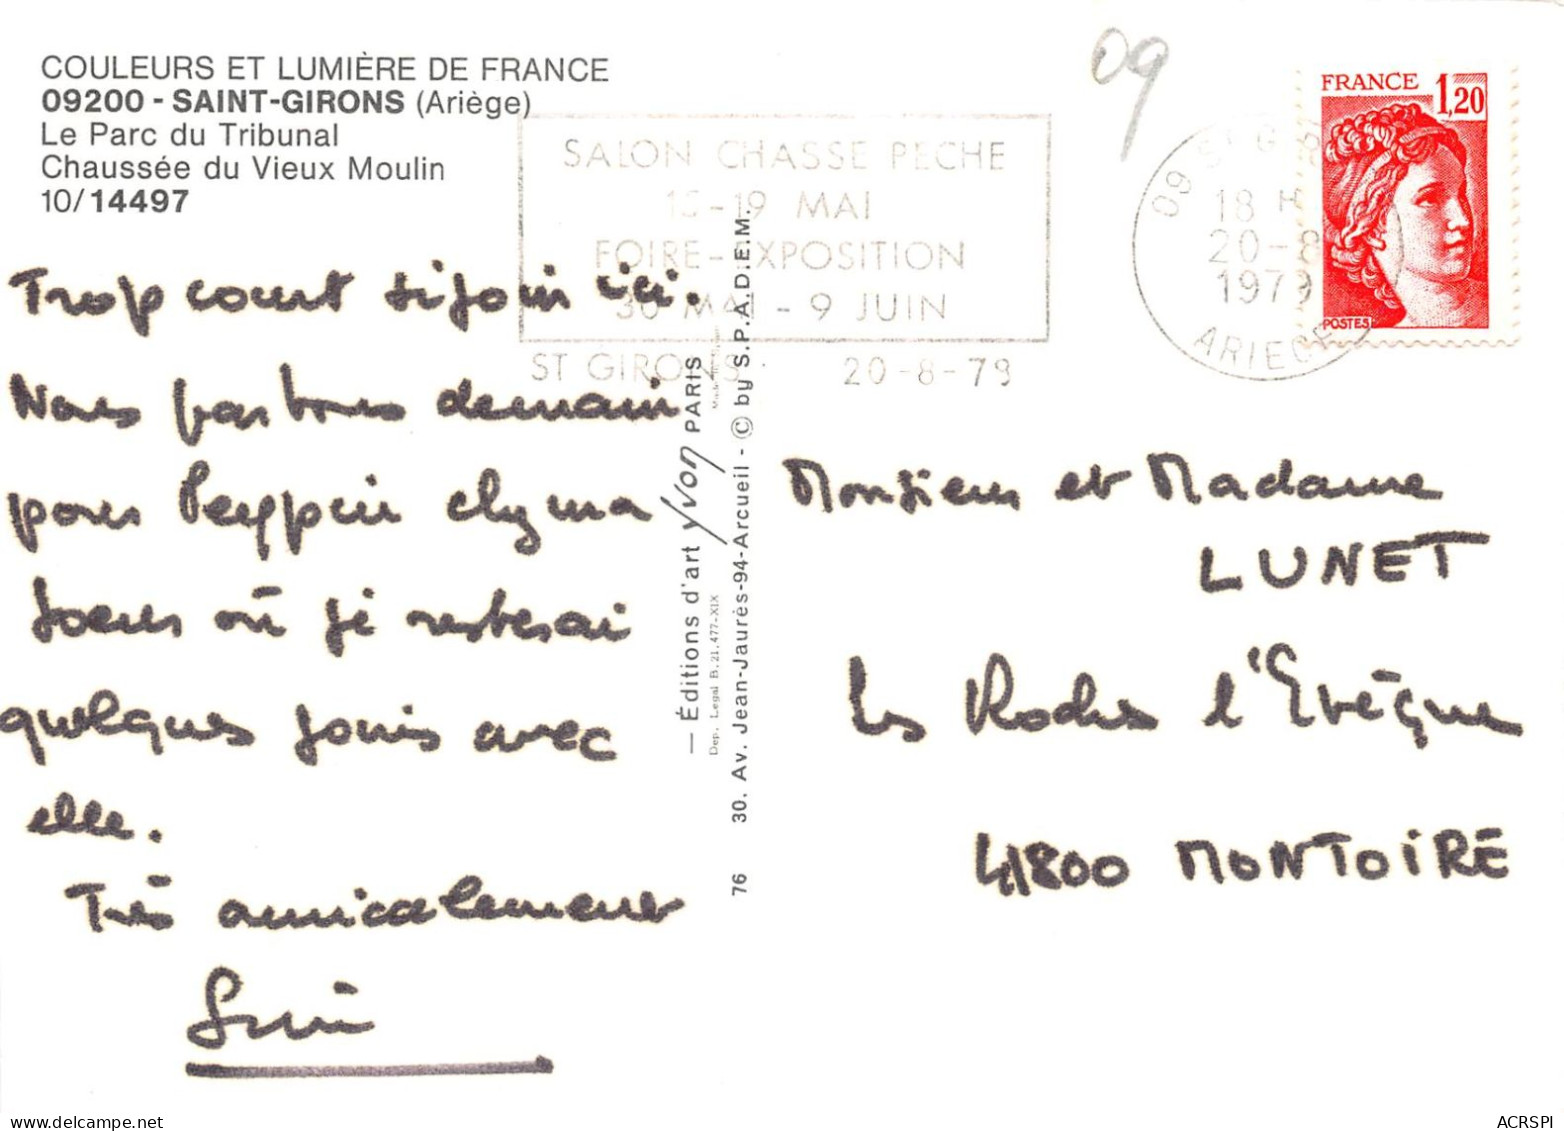 COULEURS ET LUMIÈRE DE FRANCE
09200 - SAINT-GIRONS (Ariège)
Le Parc du Tribunal
Chaussée du Vieux Moulin
10/14497
09
FRANCE 1,20
POSTES
SALON CHASSE PECHE
-19 MAI
FOIRE-EXPOSITION
30 MAI - 9 JUIN
ST GIRONS 20-8-79
18 H
20-8
1979
ARIEGE
Trop court séjour ici.
Nous partons demain
pour Peyppin chez ma
soeur où je resterai
quelques jours avec
elle.
Très amicalement
— Éditions d'art yvon PARIS
Dep. Legal B. 21.477-XIX
76 30. Av. Jean-Jaurès-94-Arcueil - © by S.P.A.D.E.M.
Monsieur et Madame
LUNET
Les Roches l'Evèque
41800 MONTOIRE
ACRSPI
www.delcampe.net